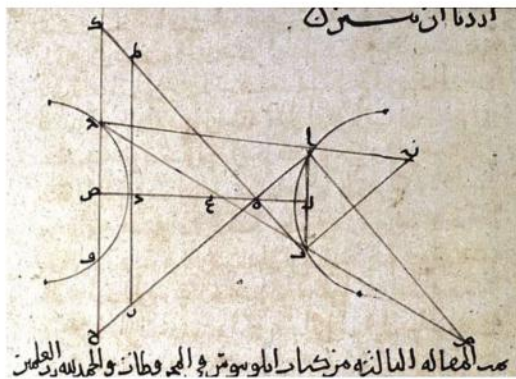 اردنا ان نبين
ك
ط
ا
ص
د
ع
ه
و
تمت المقاله الثالثه من كتاب ابلونيوس في المخروطات والحمد لله رب العلمين